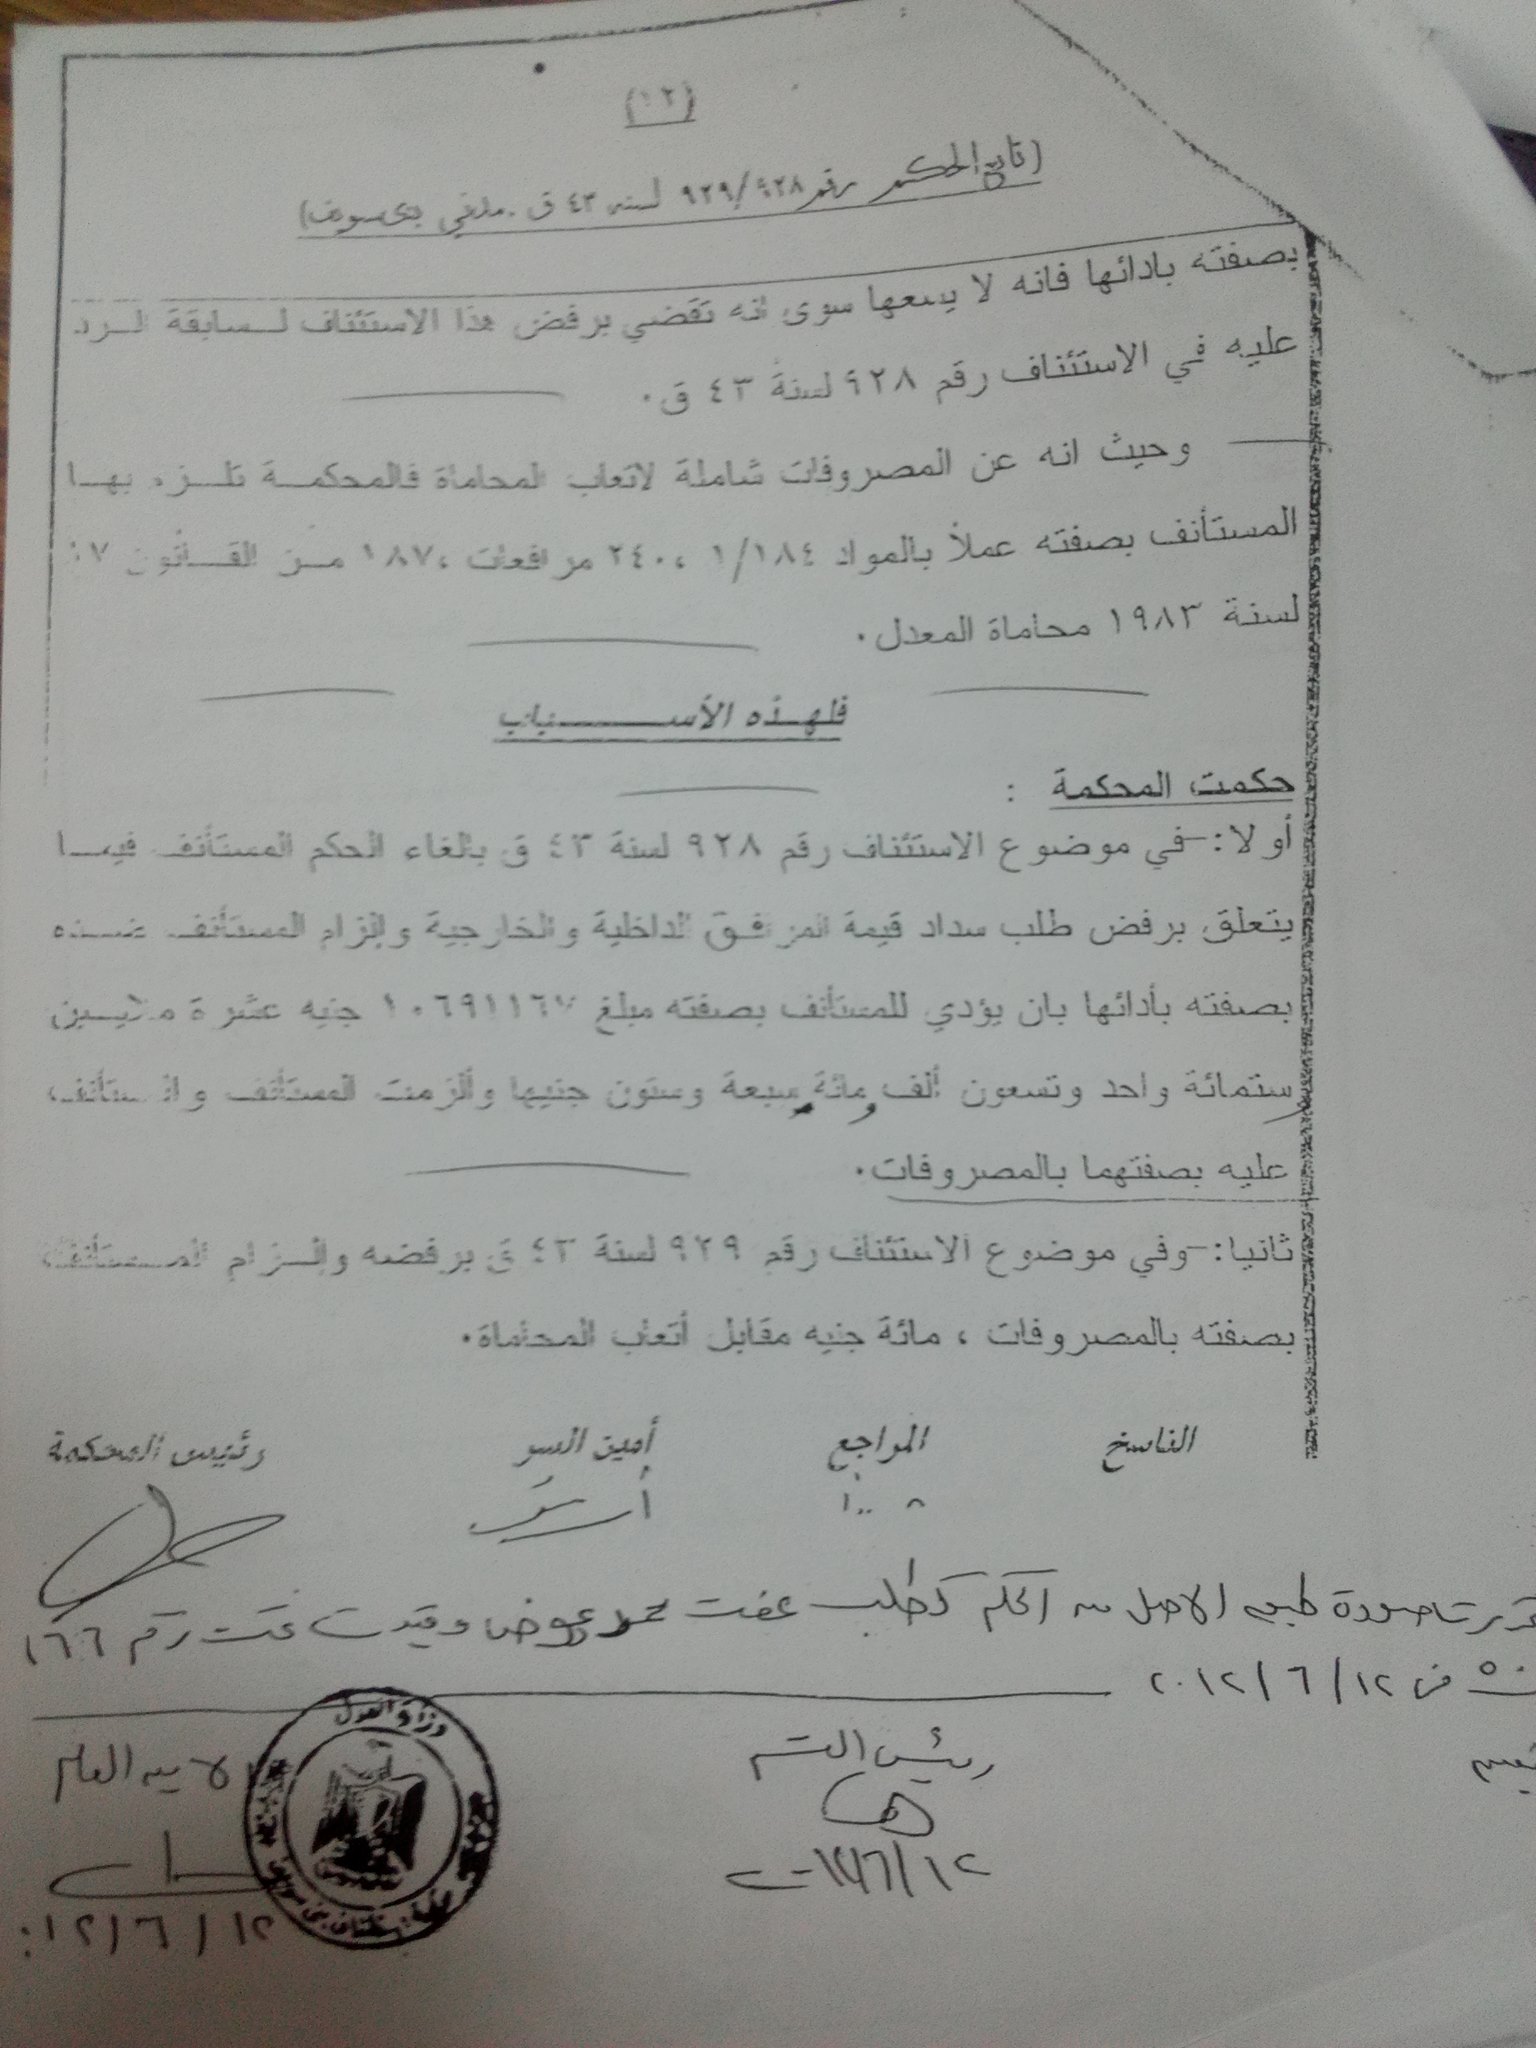 (١٢)
(تابع الحكم رقم ٩٢٩/٩٢٨ لسنه ٤٣ ق .مدني بني سويف)
بصفته بادائها فانه لا يسعها سوى انه تقضي برفض هذا الاستئناف لسابقة الرد
عليه في الاستئناف رقم ٩٢٨ لسنة ٤٣ ق.
وحيث انه عن المصروفات شاملة لاتعاب المحاماة فالمحكمة تلزم بها
المستأنف بصفته عملاً بالمواد ١/١٨٤ ،٢٤٠ مرافعات ،١٨٧ من القانون
لسنة ١٩٨٣ محاماة المعدل.
فلهذه الأسباب
حكمت المحكمة :
أولا:-في موضوع الاستئناف رقم ٩٢٨ لسنة ٤٣ ق بالغاء الحكم المستأنف فيما
يتعلق برفض طلب سداد قيمة المرافق الداخلية والخارجية والزام المستأنف ضده
بصفته بأدائها بان يؤدي للمستأنف بصفته مبلغ ١٠٦٩١١٦٧ جنيه عشرة ملايين
ستمائة واحد وتسعون ألف ومائة سبعة وستون جنيها وألزمت المستأنف والمستأنف
عليه بصفتهما بالمصروفات.
ثانيا:-وفي موضوع الاستئناف رقم ٩٢٩ لسنة ٤٣ ق برفضه والزام المستأنف
بصفته بالمصروفات ، مائة جنيه مقابل أتعاب المحاماة.
الناسخ المراجع أمين السر رئيس المحكمة
صورة طبق الاصل من الحكم كطلب عفت محمد عوض وقيدت تحت رقم ١٦٦
في ٢٠١٢/٦/١٢
رئيس القسم
٢٠١٢/٦/١٢
الامين العام
١٢/٦/١٢
وزارة العدل
محكمة استئناف بني سويف